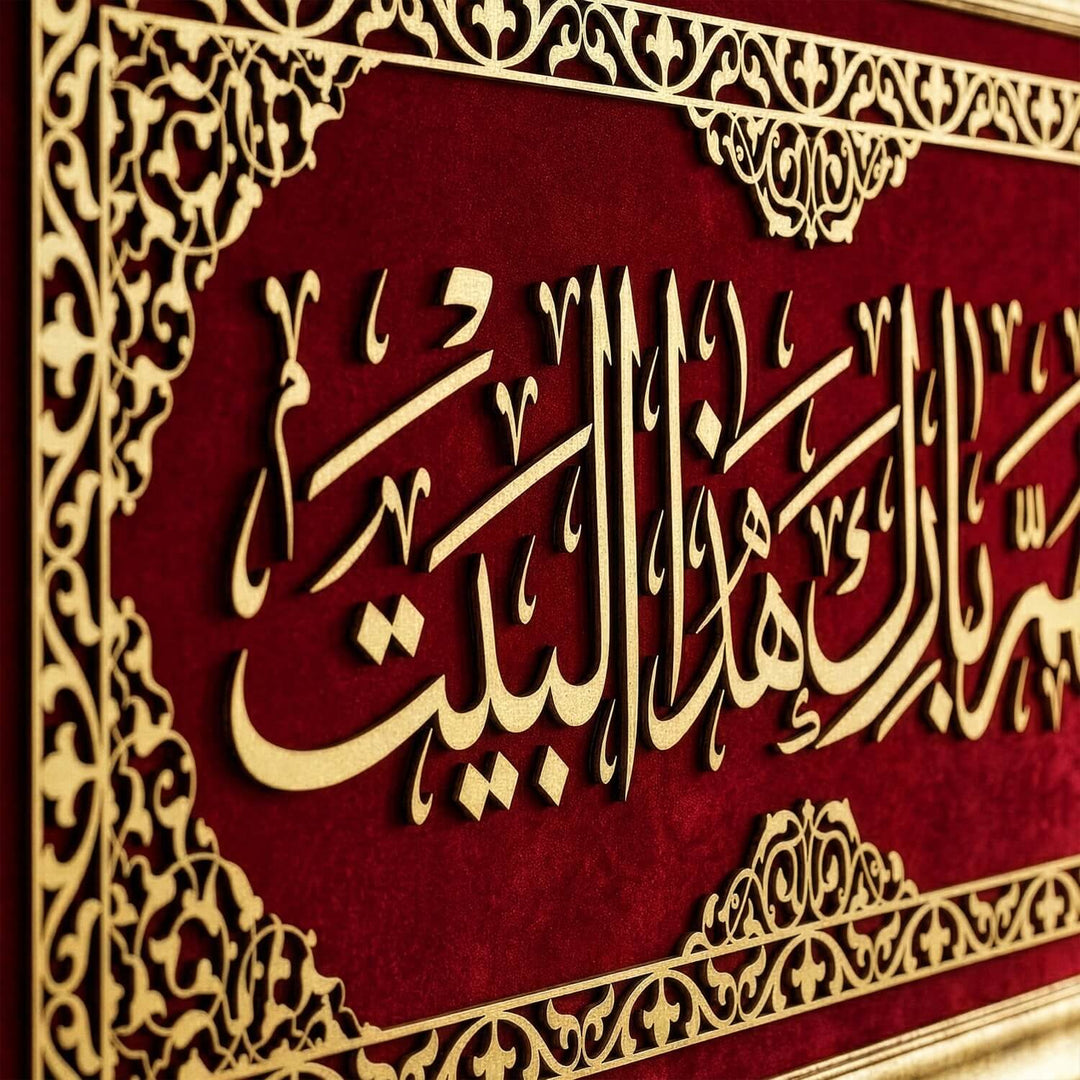 بَارِكْ هٰذَا الْبَيْتَ